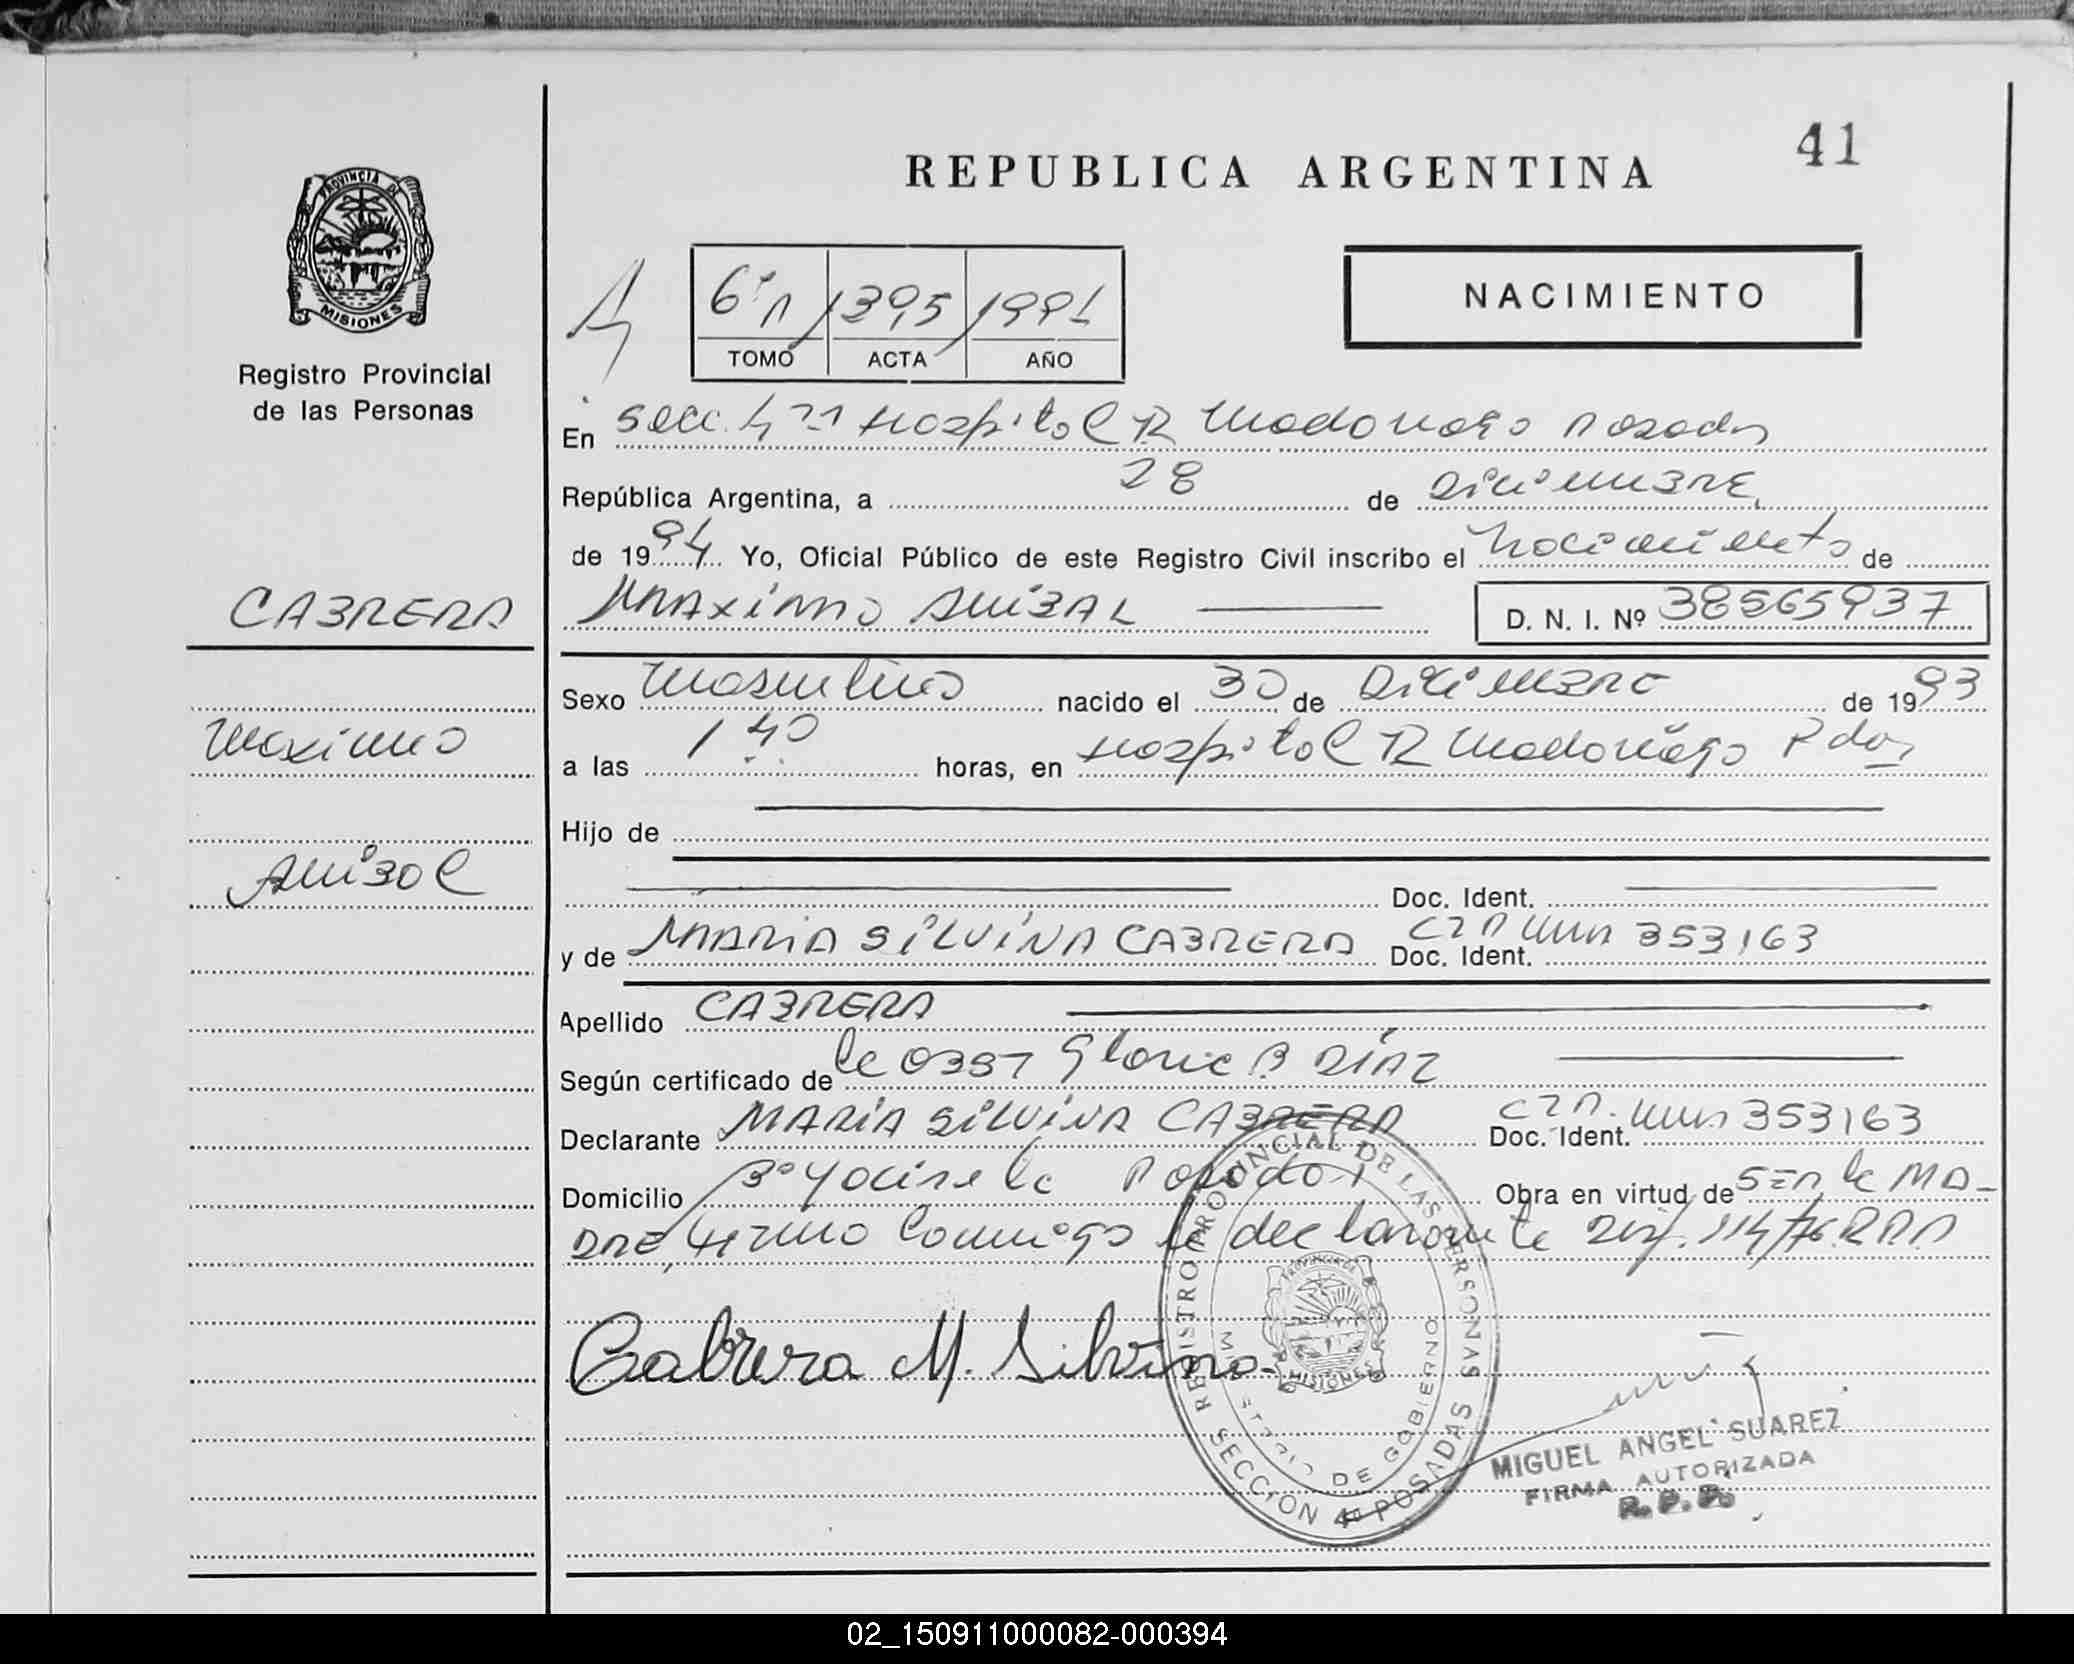 41
REPUBLICA ARGENTINA
PROVINCIA DE
MISIONES
Registro Provincial
de las Personas
NACIMIENTO
6º A / 395 / 1991
TOMO ACTA AÑO
En Secc. 4ta Hospital R Madariaga Posadas
República Argentina, a 28 de Diciembre
de 1994 Yo, Oficial Público de este Registro Civil inscribo el Nacimiento de
CABRERA
MAXIMO ANIBAL D. N. I. Nº 38565937
Sexo Masculino nacido el 30 de Diciembre de 1993
Maximo
a las 1 40 horas, en Hospital R Madariaga Pdas
Hijo de
Anibal
Doc. Ident.
y de MARIA SILVINA CABRERA Doc. Ident. 353163
Apellido CABRERA
Según certificado de la Obst Gloria B DIAZ
Declarante MARIA SILVINA CABRERA Doc. Ident. 353163
Domicilio Bº Yacireta Posadas Obra en virtud de Ser la MA-
DRE, firmo conmigo la declarante 114/76.
Cabrera M. Silvina
REGISTRO PROVINCIAL DE LAS PERSONAS
MINISTERIO DE GOBIERNO
PROVINCIA DE
MISIONES
SECCION 4ª POSADAS
MIGUEL ANGEL SUAREZ
FIRMA AUTORIZADA
R. P. P.
02_150911000082-000394